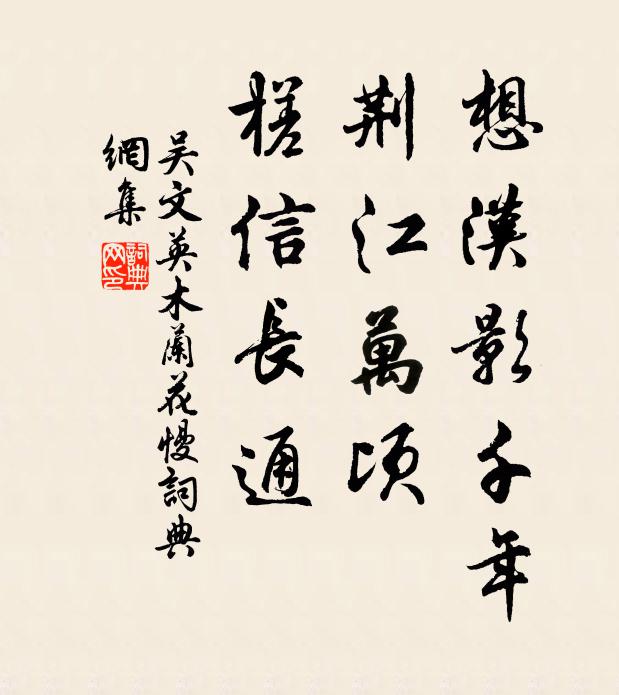 想漢影千年
荆江萬頃
槎信長通
吴文英木蘭花慢詞典
網集
詞典
网印